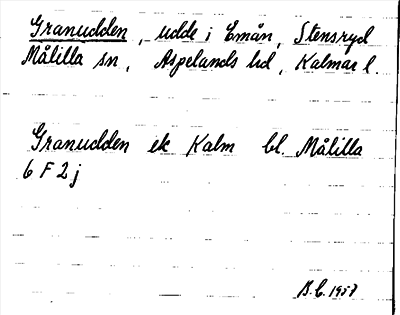 Granudden, udde i Emån, Stensryd
Målilla sn, Aspelands hd, Kalmar l.
Granudden ek Kalm bl. Målilla
6 F 2 j
B.C. 1957